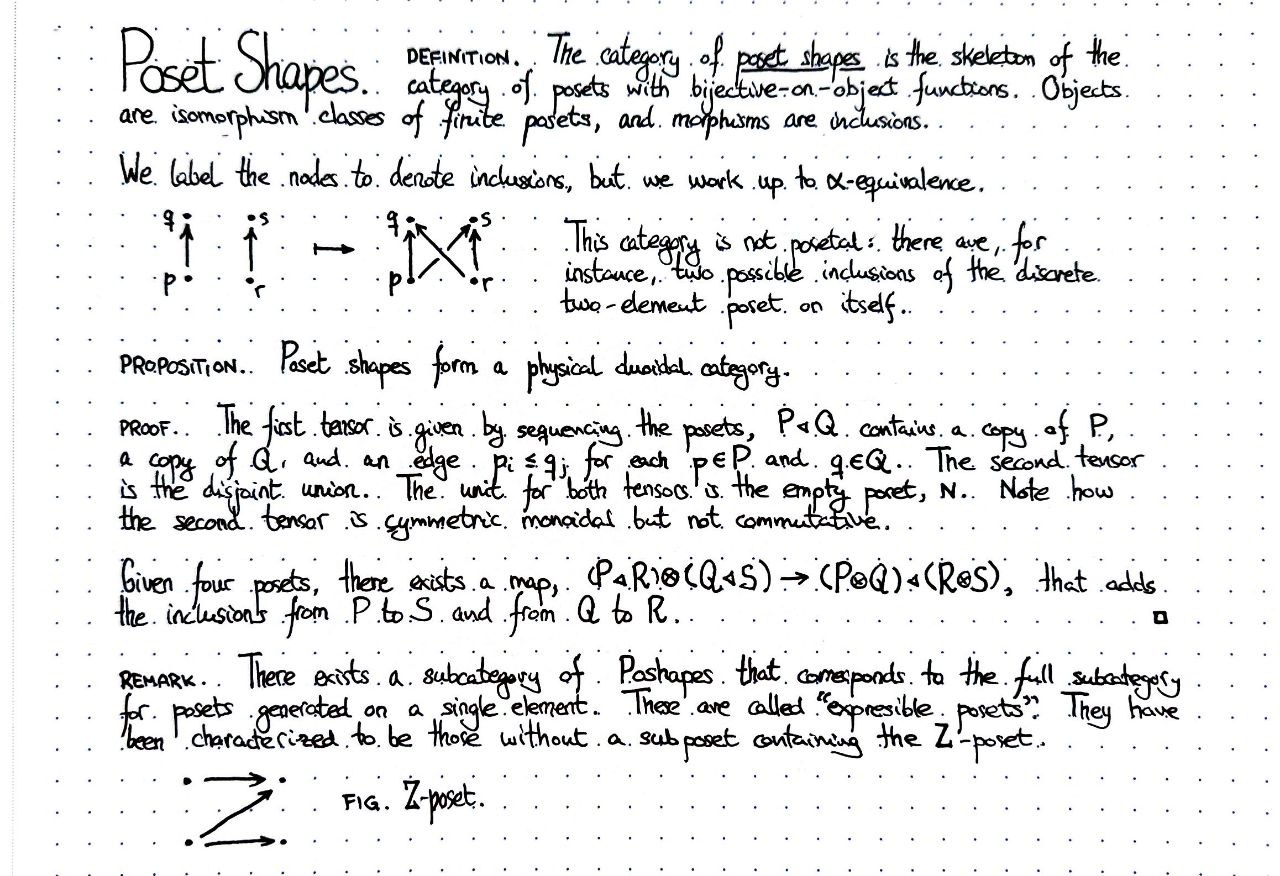 Poset Shapes. DEFINITION. The category of poset shapes is the skeleton of the
category of posets with bijective-on-object functions. Objects
are isomorphism classes of finite posets, and morphisms are inclusions.
We label the nodes to denote inclusions, but we work up to α-equivalence.
q s q s
p r p r
This category is not posetal: there are, for
instance, two possible inclusions of the discrete
two-element poset on itself.
PROPOSITION. Poset shapes form a physical duoidal category.
PROOF. The first tensor is given by sequencing the posets, P◁Q contains a copy of P,
a copy of Q, and an edge pᵢ ≤ qⱼ for each p∈P and q∈Q. The second tensor
is the disjoint union. The unit for both tensors is the empty poset, N. Note how
the second tensor is symmetric monoidal but not commutative.
Given four posets, there exists a map, (P◁R)⊗(Q◁S) → (P⊗Q)◁(R⊗S), that adds
the inclusions from P to S and from Q to R. □
REMARK. There exists a subcategory of Poshapes that corresponds to the full subcategory
for posets generated on a single element. These are called "expresible posets". They have
been characterized to be those without a subposet containing the Z-poset.
FIG. Z-poset.